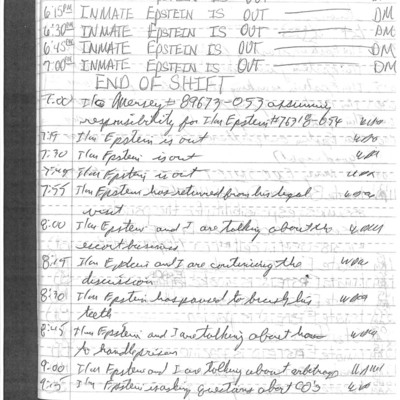 6:15PM INMATE EPSTEIN IS OUT DM
6:30PM INMATE EPSTEIN IS OUT DM
6:45PM INMATE EPSTEIN IS OUT DM
7:00PM INMATE EPSTEIN IS OUT DM
END OF SHIFT
7:00 I/m Mersey # 89673-053 assuming
responsibility for I/m Epstein # 76318-054
I/m Epstein is out
7:30 I/m Epstein is out
I/m Epstein is out
7:55 I/m Epstein has returned from his legal
visit
8:00 I/m Epstein and I are talking about the
escort business
8:15 I/m Epstein and I are continuing the
discussion
8:30 I/m Epstein has paused to brush his
teeth
8:45 I/m Epstein and I are talking about how
to handle prison
9:00 I/m Epstein and I are talking about arbitrage
9:15 I/m Epstein is asking questions about CO's